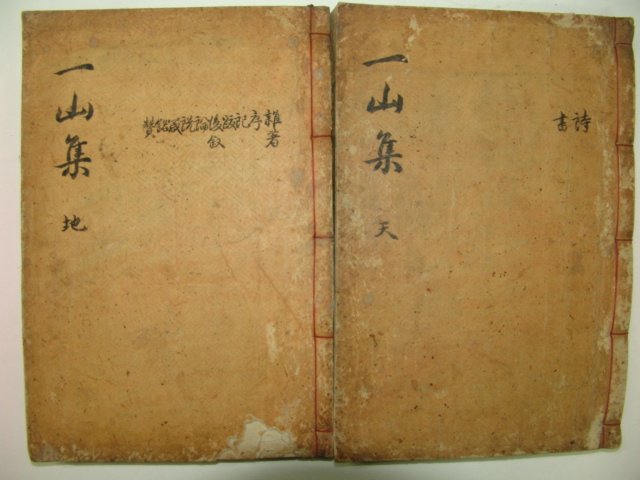 一山集 天
詩
書
一山集 地
雜著
序記跋後敍論說箴銘贊